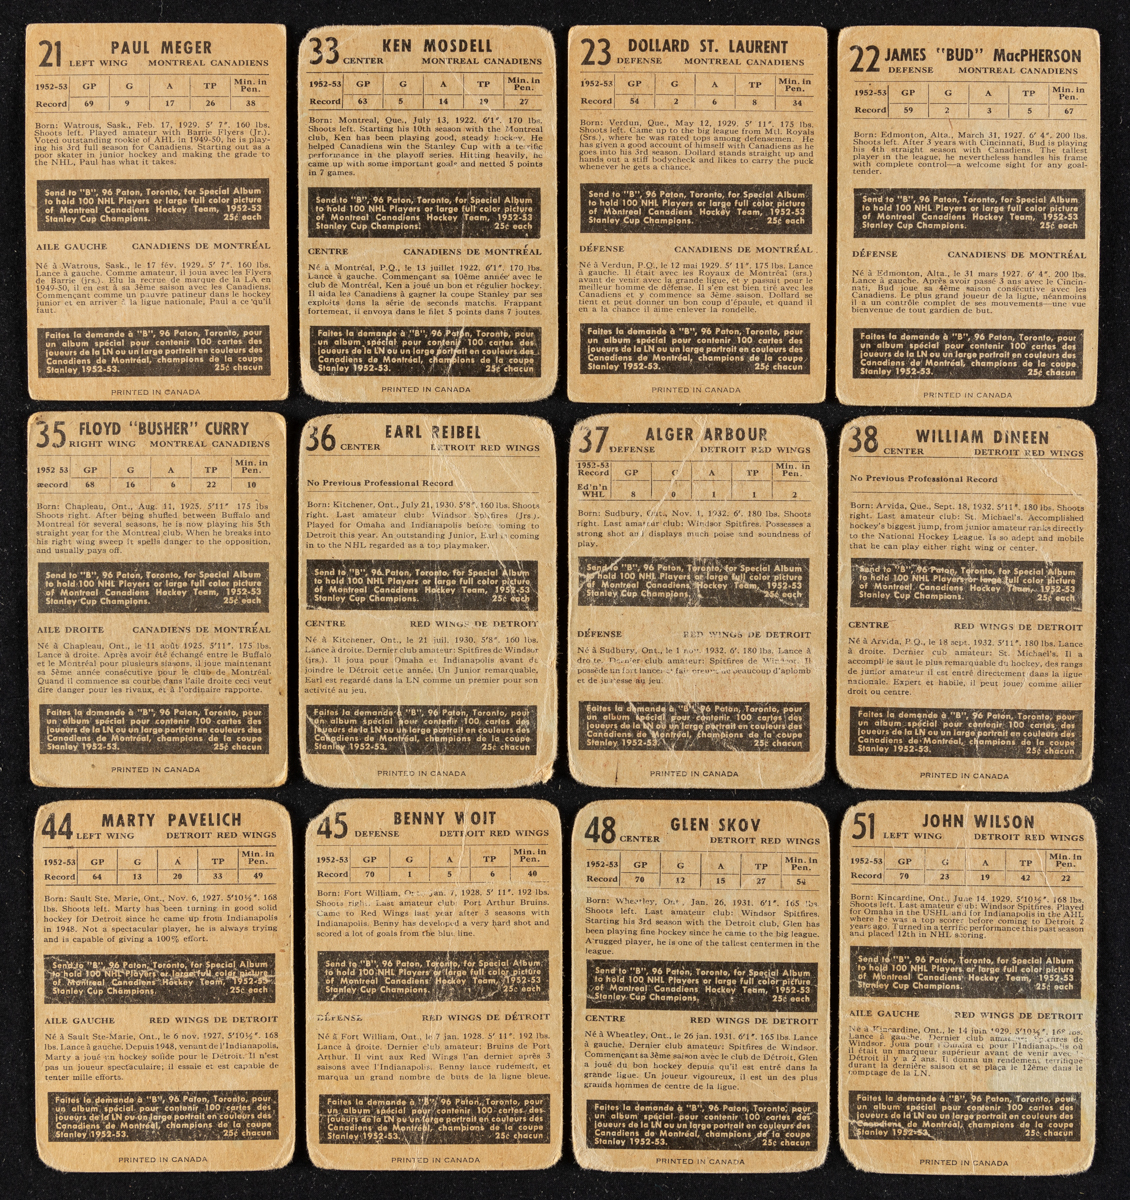 21 PAUL MEGER
LEFT WING MONTREAL CANADIENS
1952-53 GP G A TP Min. in Pen.
Record 69 9 17 26 38
Born: Watrous, Sask., Feb. 17, 1929. 5' 7". 160 lbs.
Shoots left. Played amateur with Barrie Flyers (Jr.).
Voted outstanding rookie of AHL in 1949-50, he is play-
ing his 3rd full season for Canadiens. Starting out as a
poor skater in junior hockey and making the grade to
the NHL, Paul has what it takes.
Send to "B", 96 Paton, Toronto, for Special Album
to hold 100 NHL Players or large full color picture
of Montreal Canadiens Hockey Team, 1952-53
Stanley Cup Champions. 25¢ each
AILE GAUCHE CANADIENS DE MONTRÉAL
Né à Watrous, Sask., le 17 fév. 1929. 5' 7". 160 lbs.
Lance à gauche. Comme amateur, il joua avec les Flyers
de Barrie (jrs.). Elu la recrue de marque de la LA en
1949-50, il en est à sa 3ème saison avec les Canadiens.
Commençant comme un pauvre patineur dans le hockey
junior et en arriver à la ligue nationale, Paul a ce qu'il
faut.
Faites la demande à "B", 96 Paton, Toronto, pour
un album spécial pour contenir 100 cartes des
joueurs de la LN ou un large portrait en couleurs des
Canadiens de Montréal, champions de la coupe
Stanley 1952-53. 25¢ chacun
PRINTED IN CANADA
33 KEN MOSDELL
CENTER MONTREAL CANADIENS
1952-53 GP G A TP Min. in Pen.
Record 63 5 14 19 27
Born: Montreal, Que., July 13, 1922. 6'1". 170 lbs.
Shoots left. Starting his 10th season with the Montreal
club, Ken has been playing good, steady hockey. He
helped Canadiens win the Stanley Cup with a terrific
performance in the playoff series. Hitting heavily, he
came up with some important goals and netted 5 points
in 7 games.
Send to "B", 96 Paton, Toronto, for Special Album
to hold 100 NHL Players or large full color picture
of Montreal Canadiens Hockey Team, 1952-53
Stanley Cup Champions. 25¢ each
CENTRE CANADIENS DE MONTRÉAL
Né à Montréal, P.Q., le 13 juillet 1922. 6'1". 170 lbs.
Lance à gauche. Commençant sa 10ème année avec le
club de Montréal, Ken a joué un bon et régulier hockey.
Il aida les Canadiens à gagner la coupe Stanley par ses
exploits dans la série de seconds matchs. Frappant
fortement, il envoya dans le filet 5 points dans 7 joutes.
Faites la demande à "B", 96 Paton, Toronto, pour
un album spécial pour contenir 100 cartes des
joueurs de la LN ou un large portrait en couleurs des
Canadiens de Montréal, champions de la coupe
Stanley 1952-53. 25¢ chacun
PRINTED IN CANADA
23 DOLLARD ST. LAURENT
DEFENSE MONTREAL CANADIENS
1952-53 GP G A TP Min. in Pen.
Record 54 2 6 8 34
Born: Verdun, Que., May 12, 1929. 5' 11". 175 lbs.
Shoots left. Came up to the big league from Mtl. Royals
(Srs.), where he was rated tops among defensemen. He
has given a good account of himself with Canadiens as he
goes into his 3rd season. Dollard stands straight up and
hands out a stiff bodycheck and likes to carry the puck
whenever he gets a chance.
Send to "B", 96 Paton, Toronto, for Special Album
to hold 100 NHL Players or large full color picture
of Montreal Canadiens Hockey Team, 1952-53
Stanley Cup Champions. 25¢ each
DÉFENSE CANADIENS DE MONTRÉAL
Né à Verdun, P.Q., le 12 mai 1929. 5' 11". 175 lbs. Lance
à gauche. Il était avec les Royaux de Montréal (srs.)
avant de venir avec la grande ligue, et y passait pour le
meilleur homme de défense. Il s'en est bien tiré avec les
Canadiens et y commence sa 3ème saison. Dollard se
tient et peut donner un bon coup d'épaule, et quand il
en a la chance il aime enlever la rondelle.
Faites la demande à "B", 96 Paton, Toronto, pour
un album spécial pour contenir 100 cartes des
joueurs de la LN ou un large portrait en couleurs des
Canadiens de Montréal, champions de la coupe
Stanley 1952-53. 25¢ chacun
PRINTED IN CANADA
22 JAMES "BUD" MacPHERSON
DEFENSE MONTREAL CANADIENS
1952-53 GP G A TP Min. in Pen.
Record 59 2 3 5 67
Born: Edmonton, Alta., March 31, 1927. 6' 4". 200 lbs.
Shoots left. After 3 years with Cincinnati, Bud is playing
his 4th straight season with Canadiens. The tallest
player in the league, he nevertheless handles his frame
with complete control—a welcome sight for any goal-
tender.
Send to "B", 96 Paton, Toronto, for Special Album
to hold 100 NHL Players or large full color picture
of Montreal Canadiens Hockey Team, 1952-53
Stanley Cup Champions. 25¢ each
DÉFENSE CANADIENS DE MONTRÉAL
Né à Edmonton, Alta., le 31 mars 1927. 6' 4". 200 lbs.
Lance à gauche. Après avoir passé 3 ans avec le Cincin-
nati, Bud joue sa 4ème saison consécutive avec les
Canadiens. Le plus grand joueur de la ligue, néanmoins
il a un contrôle complet de ses mouvements—une vue
bienvenue de tout gardien de but.
Faites la demande à "B", 96 Paton, Toronto, pour
un album spécial pour contenir 100 cartes des
joueurs de la LN ou un large portrait en couleurs des
Canadiens de Montréal, champions de la coupe
Stanley 1952-53. 25¢ chacun
PRINTED IN CANADA
35 FLOYD "BUSHER" CURRY
RIGHT WING MONTREAL CANADIENS
1952 53 GP G A TP Min. in Pen.
Record 68 16 6 22 10
Born: Chapleau, Ont., Aug. 11, 1925. 5'11". 175 lbs
Shoots right. After being shuffled between Buffalo and
Montreal for several seasons, he is now playing his 5th
straight year for the Montreal club. When he breaks into
his right wing sweep it spells danger to the opposition,
and usually pays off.
Send to "B", 96 Paton, Toronto, for Special Album
to hold 100 NHL Players or large full color picture
of Montreal Canadiens Hockey Team, 1952-53
Stanley Cup Champions. 25¢ each
AILE DROITE CANADIENS DE MONTRÉAL
Né à Chapleau, Ont., le 11 août 1925. 5'11". 175 lbs.
Lance à droite. Après avoir été échangé entre le Buffalo
et le Montréal pour plusieurs siasons, il joue maintenant
sa 5ème année consécutive pour le club de Montréal.
Quand il commence sa courbe dans l'aile droite ceci veut
dire danger pour les rivaux, et à l'ordinaire rapporte.
Faites la demande à "B", 96 Paton, Toronto, pour
un album spécial pour contenir 100 cartes des
joueurs de la LN ou un large portrait en couleurs des
Canadiens de Montréal, champions de la coupe
Stanley 1952-53. 25¢ chacun
PRINTED IN CANADA
36 EARL REIBEL
CENTER DETROIT RED WINGS
No Previous Professional Record
Born: Kitchener, Ont., July 21, 1930. 5'8". 160 lbs. Shoots
right. Last amateur club: Windsor Spitfires (Jrs.).
Played for Omaha and Indianapolis before coming to
Detroit this year. An outstanding Junior, Earl is coming
in to the NHL regarded as a top playmaker.
Send to "B", 96 Paton, Toronto, for Special Album
to hold 100 NHL Players or large full color picture
of Montreal Canadiens Hockey Team, 1952-53
Stanley Cup Champions. 25¢ each
CENTRE RED WINGS DE DETROIT
Né à Kitchener, Ont., le 21 juil. 1930. 5'8". 160 lbs.
Lance à droite. Dernier club amateur: Spitfires de Windsor
(jrs.). Il joua pour Omaha et Indianapolis avant de
joindre le Détroit cette année. Un Junior remarquable,
Earl est regardé dans la LN comme un premier pour son
activité au jeu.
Faites la demande à "B", 96 Paton, Toronto, pour
un album spécial pour contenir 100 cartes des
joueurs de la LN ou un large portrait en couleurs des
Canadiens de Montréal, champions de la coupe
Stanley 1952-53. 25¢ chacun
PRINTED IN CANADA
37 ALGER ARBOUR
DEFENSE DETROIT RED WINGS
1952-53 Record GP G A TP Min. in Pen.
Ed'n'n WHL 8 0 1 1 2
Born: Sudbury, Ont., Nov. 1, 1932. 6'. 180 lbs. Shoots
right. Last amateur club: Windsor Spitfires. Possesses a
strong shot and displays much poise and soundness of
play.
Send to "B", 96 Paton, Toronto, for Special Album
to hold 100 NHL Players or large full color picture
of Montreal Canadiens Hockey Team, 1952-53
Stanley Cup Champions. 25¢ each
DÉFENSE RED WINGS DE DETROIT
Né à Sudbury, Ont., le 1 nov. 1932. 6'. 180 lbs. Lance à
droite. Dernier club amateur: Spitfires de Windsor. Il
possède un fort lancé beaucoup d'aplomb
et de justesse au jeu.
Faites la demande à "B", 96 Paton, Toronto, pour
un album spécial pour contenir 100 cartes des
joueurs de la LN ou un large portrait en couleurs des
Canadiens de Montréal, champions de la coupe
Stanley 1952-53. 25¢ chacun
PRINTED IN CANADA
38 WILLIAM DINEEN
CENTER DETROIT RED WINGS
No Previous Professional Record
Born: Arvida, Que., Sept. 18, 1932. 5'11". 180 lbs. Shoots
right. Last amateur club: St. Michael's. Accomplished
hockey's biggest jump, from junior amateur ranks directly
to the National Hockey League. Is so adept and mobile
that he can play either right wing or center.
Send to "B", 96 Paton, Toronto, for Special Album
to hold 100 NHL Players or large full color picture
of Montreal Canadiens Hockey Team, 1952-53
Stanley Cup Champions. 25¢ each
CENTRE RED WINGS DE DETROIT
Né à Arvida, P.Q., le 18 sept. 1932. 5'11". 180 lbs. Lance
à droite. Dernier club amateur: St. Michael's. Il a
accompli le saut le plus remarquable du hockey, des rangs
de junior amateur il est entré directement dans la ligue
nationale. Expert et habile, il peut jouer comme ailier
droit ou centre.
Faites la demande à "B", 96 Paton, Toronto, pour
un album spécial pour contenir 100 cartes des
joueurs de la LN ou un large portrait en couleurs des
Canadiens de Montréal, champions de la coupe
Stanley 1952-53. 25¢ chacun
PRINTED IN CANADA
44 MARTY PAVELICH
LEFT WING DETROIT RED WINGS
1952-53 GP G A TP Min. in Pen.
Record 64 13 20 33 49
Born: Sault Ste. Marie, Ont., Nov. 6, 1927. 5'10½". 168
lbs. Shoots left. Marty has been turning in good solid
hockey for Detroit since he came up from Indianapolis
in 1948. Not a spectacular player, he is always trying
and is capable of giving a 100% effort.
Send to "B", 96 Paton, Toronto, for Special Album
to hold 100 NHL Players or large full color picture
of Montreal Canadiens Hockey Team, 1952-53
Stanley Cup Champions. 25¢ each
AILE GAUCHE RED WINGS DE DETROIT
Né à Sault Ste-Marie, Ont., le 6 nov. 1927, 5'10½". 168
lbs. Lance à gauche. Depuis 1948, venant de l'Indianapolis,
Marty a joué un hockey solide pour le Détroit. Il n'est
pas un joueur spectaculaire; il essaie et est capable de
tenter mille efforts.
Faites la demande à "B", 96 Paton, Toronto, pour
un album spécial pour contenir 100 cartes des
joueurs de la LN ou un large portrait en couleurs des
Canadiens de Montréal, champions de la coupe
Stanley 1952-53. 25¢ chacun
PRINTED IN CANADA
45 BENNY WOIT
DEFENSE DETROIT RED WINGS
1952-53 GP G A TP Min. in Pen.
Record 70 1 5 6 40
Born: Fort William, Ont., Jan. 7, 1928. 5' 11". 192 lbs.
Shoots right. Last amateur club: Port Arthur Bruins.
Came to Red Wings last year after 3 seasons with
Indianapolis. Benny has developed a very hard shot and
scored a lot of goals from the blue line.
Send to "B", 96 Paton, Toronto, for Special Album
to hold 100 NHL Players or large full color picture
of Montreal Canadiens Hockey Team, 1952-53
Stanley Cup Champions. 25¢ each
DÉFENSE RED WINGS DE DÉTROIT
Né à Fort William, Ont., le 7 jan. 1928. 5' 11". 192 lbs.
Lance à droite. Dernier club amateur: Bruins de Port
Arthur. Il vint aux Red Wings l'an dernier après 3
saisons avec l'Indianapolis. Benny lance rudement, et
marqua un grand nombre de buts de la ligne bleue.
Faites la demande à "B", 96 Paton, Toronto, pour
un album spécial pour contenir 100 cartes des
joueurs de la LN ou un large portrait en couleurs des
Canadiens de Montréal, champions de la coupe
Stanley 1952-53. 25¢ chacun
PRINTED IN CANADA
48 GLEN SKOV
CENTER DETROIT RED WINGS
1952-53 GP G A TP Min. in Pen.
Record 70 12 15 27 54
Born: Wheatley, Ont., Jan. 26, 1931. 6'1". 165 lbs.
Shoots left. Last amateur club: Windsor Spitfires.
Starting his 3rd season with the Detroit club, Glen has
been playing fine hockey since he came to the big league.
A rugged player, he is one of the tallest centermen in the
league.
Send to "B", 96 Paton, Toronto, for Special Album
to hold 100 NHL Players or large full color picture
of Montreal Canadiens Hockey Team, 1952-53
Stanley Cup Champions. 25¢ each
CENTRE RED WINGS DE DETROIT
Né à Wheatley, Ont., le 26 jan. 1931. 6'1". 165 lbs. Lance
à gauche. Dernier club amateur: Spitfires de Windsor.
Commençant sa 3ème saison avec le club de Détroit, Glen
a joué du bon hockey depuis qu'il est entré dans la
grande ligue. Un joueur vigoureux, il est un des plus
grands hommes de centre de la ligue.
Faites la demande à "B", 96 Paton, Toronto, pour
un album spécial pour contenir 100 cartes des
joueurs de la LN ou un large portrait en couleurs des
Canadiens de Montréal, champions de la coupe
Stanley 1952-53. 25¢ chacun
PRINTED IN CANADA
51 JOHN WILSON
LEFT WING DETROIT RED WINGS
1952-53 GP G A TP Min. in Pen.
Record 70 23 19 42 22
Born: Kincardine, Ont., June 14, 1929. 5'10½". 168 lbs.
Shoots left. Last amateur club: Windsor Spitfires. Played
for Omaha in the USHL and for Indianapolis in the AHL
where he was a top scorer before coming to Detroit 2
years ago. Turned in a terrific performance this past season
and placed 12th in NHL scoring.
Send to "B", 96 Paton, Toronto, for Special Album
to hold 100 NHL Players or large full color picture
of Montreal Canadiens Hockey Team, 1952-53
Stanley Cup Champions. 25¢ each
AILE GAUCHE RED WINGS DE DETROIT
Né à Kincardine, Ont., le 14 juin 1929. 5'10½". 168 lbs.
Lance à gauche. Dernier club amateur: Spitfires de
Windsor. Joua pour Omaha et pour l'Indianapolis où
il était un marqueur supérieur avant de venir avec
Détroit il y a 2 ans. Il donna un rendement terrifique
durant la dernière saison et se plaça le 12ème dans le
comptage de la LN.
Faites la demande à "B", 96 Paton, Toronto, pour
un album spécial pour contenir 100 cartes des
joueurs de la LN ou un large portrait en couleurs des
Canadiens de Montréal, champions de la coupe
Stanley 1952-53. 25¢ chacun
PRINTED IN CANADA